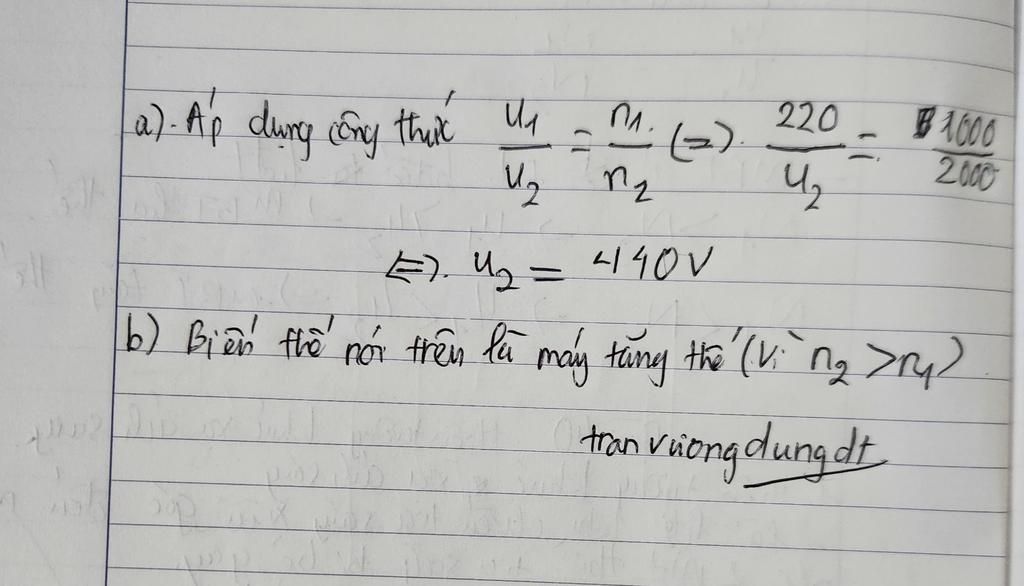 a). Áp dụng công thức U1/U2 = n1/n2 (=). 220/U2 = 1000/2000
<=>. U2 = 440V
b) Biến thế nói trên là máy tăng thế (vì n2 > n1)
tranvuongdungdt